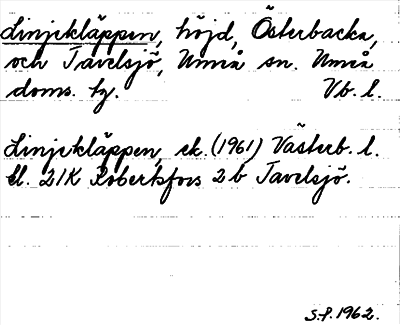 Linjekläppen, höjd, Österbacka,
och Tavelsjö, Umeå sn. Umeå
doms. hg. Vb. l.
Linjekläppen, ek. (1961) Västerb. l.
bl. 21K Robertsfors 2b Tavelsjö.
S.P. 1962.